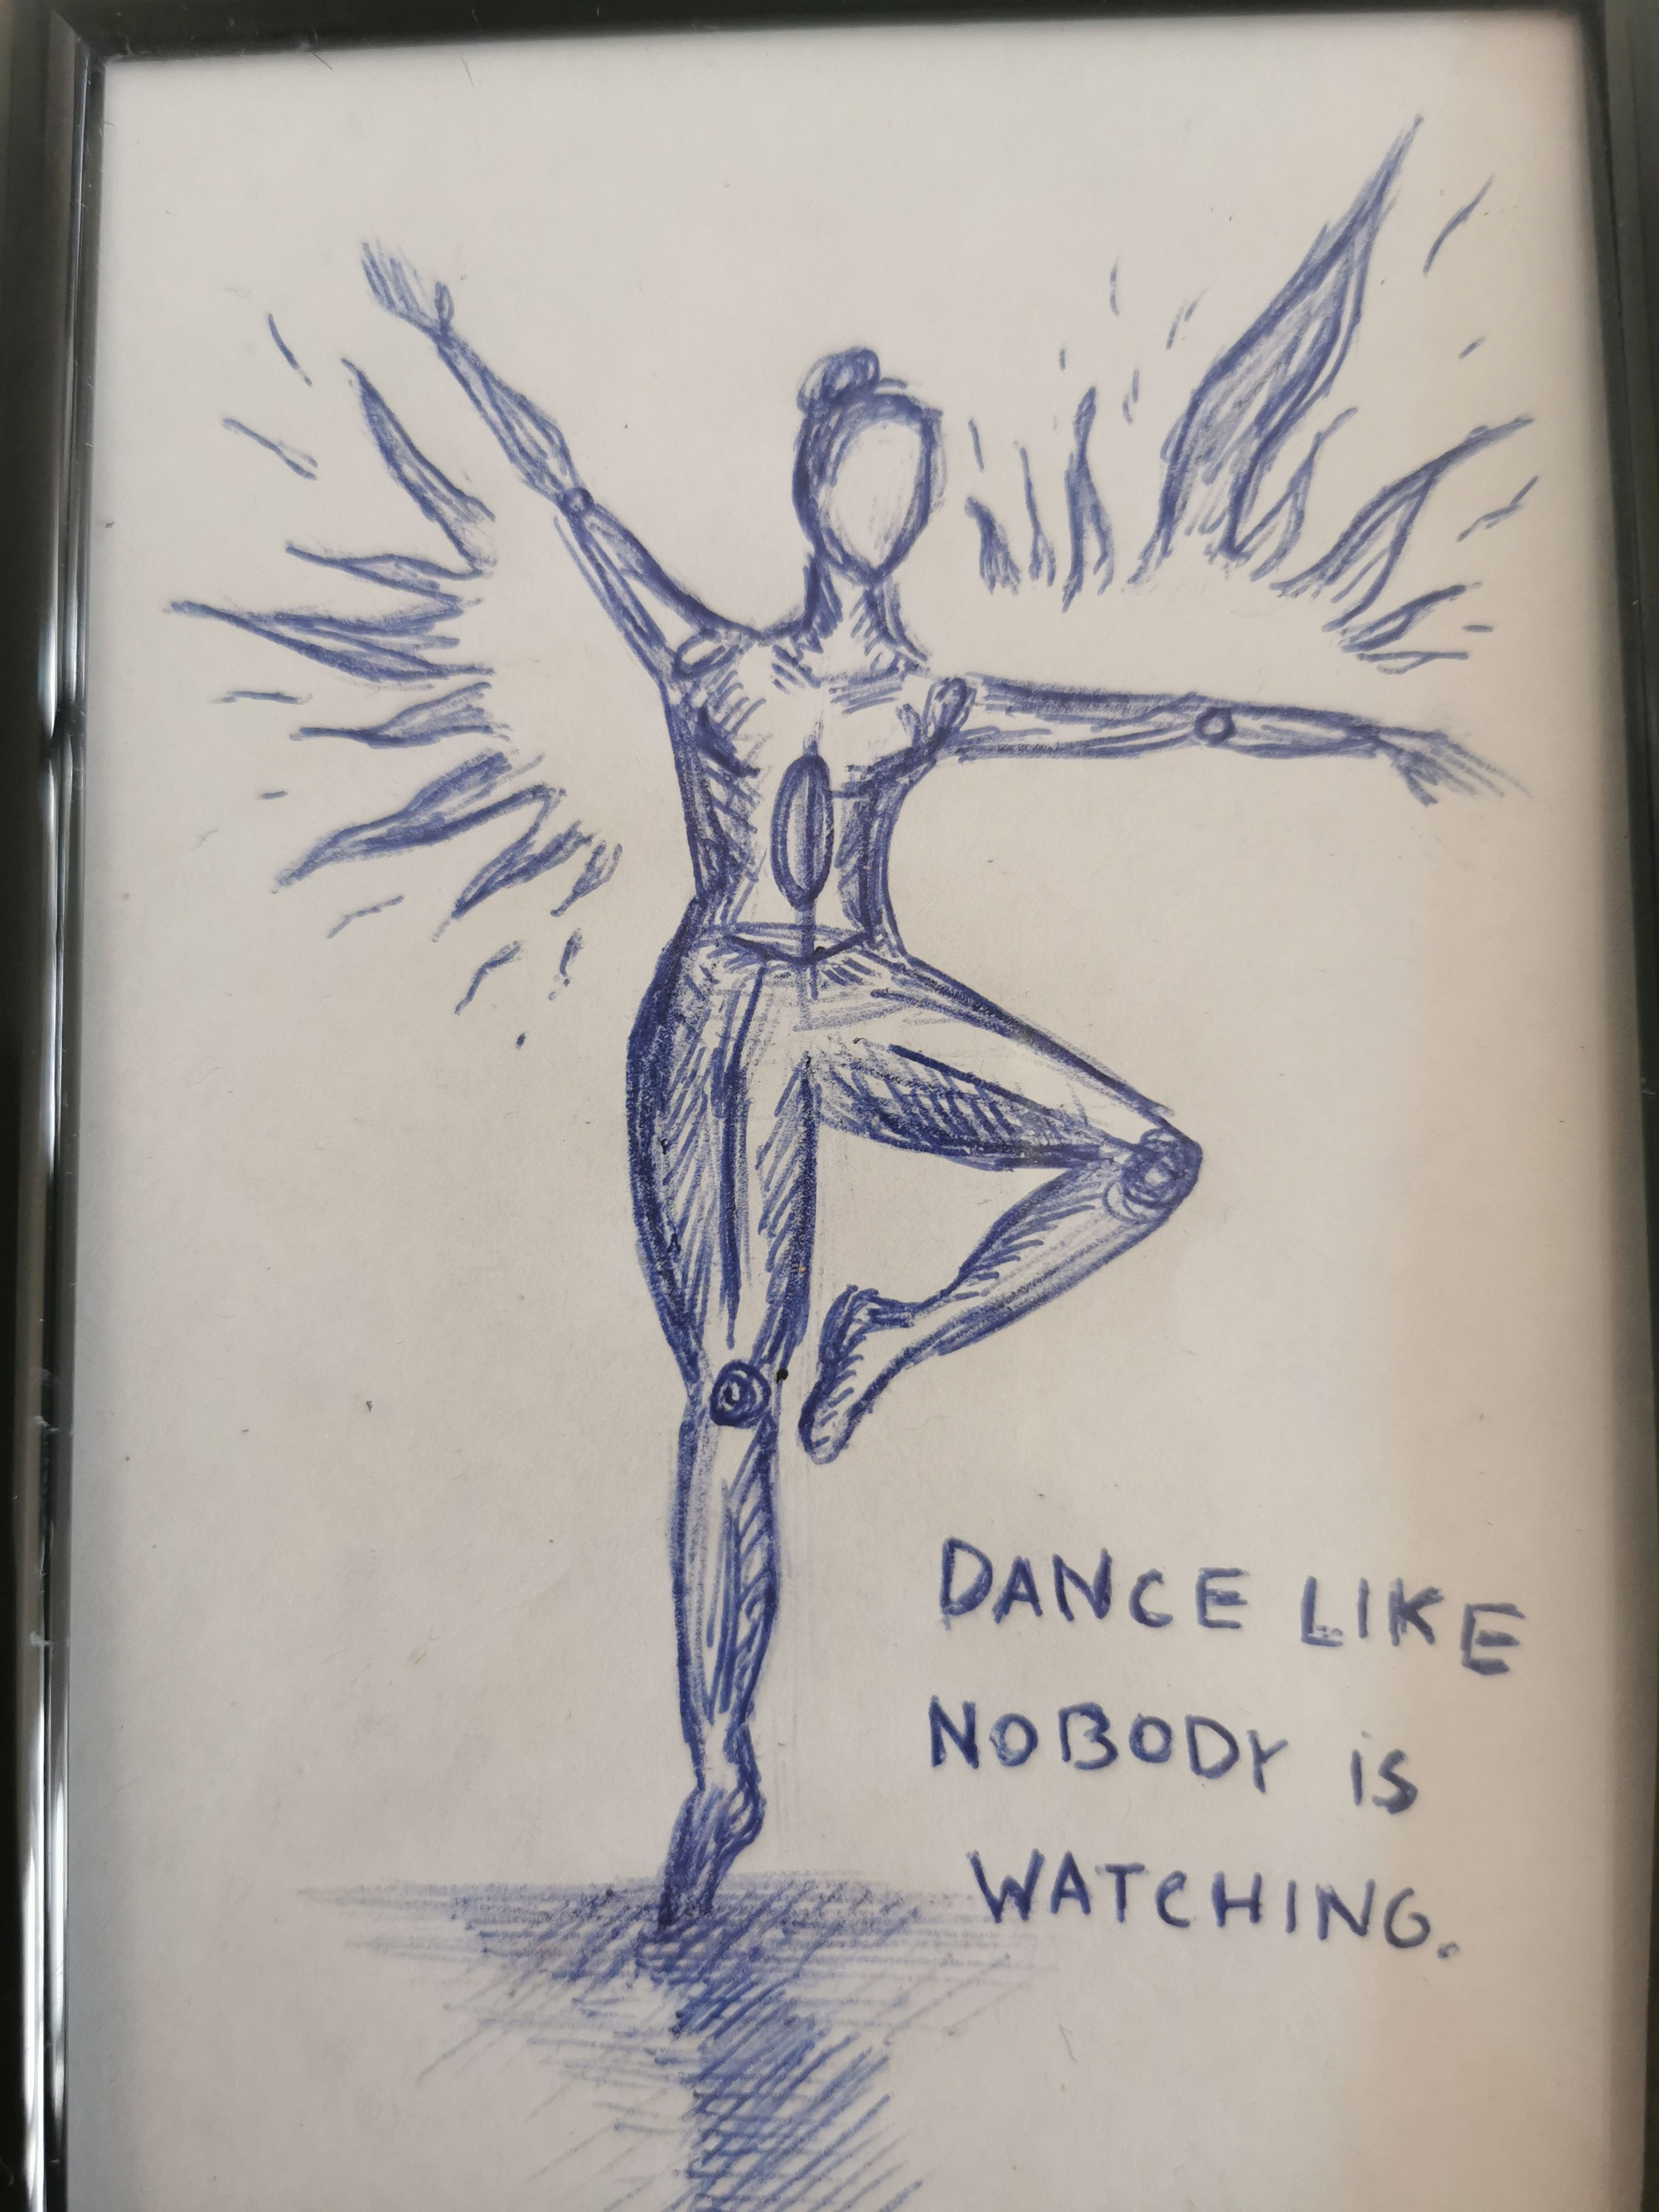 DANCE LIKE
NOBODY is
WATCHING.